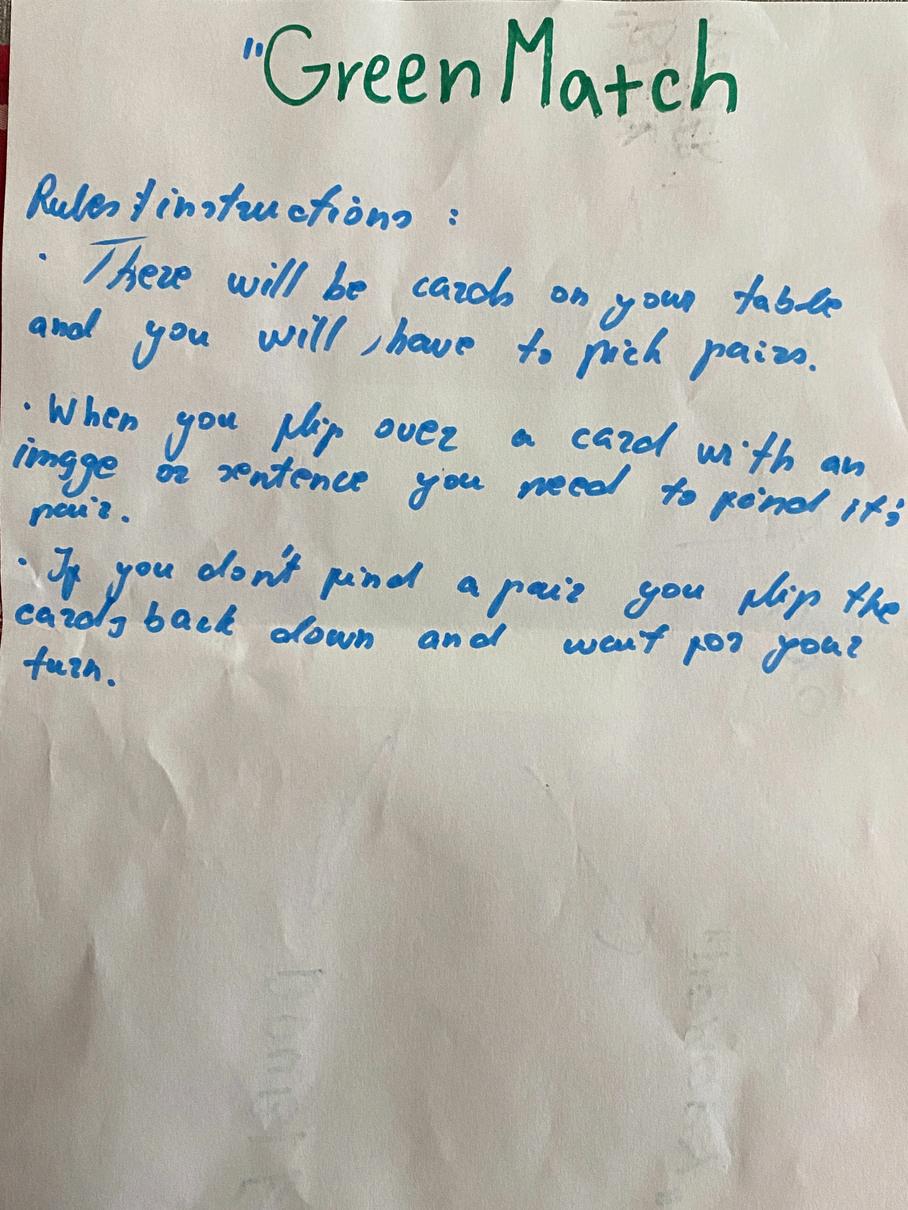 "Green Match
Rules / instructions :
· There will be cards on your table
and you will have to pick pairs.
· When you flip over a card with an
image or sentence you need to find it's
pair.
· If you don't find a pair you flip the
cards back down and wait for your
turn.